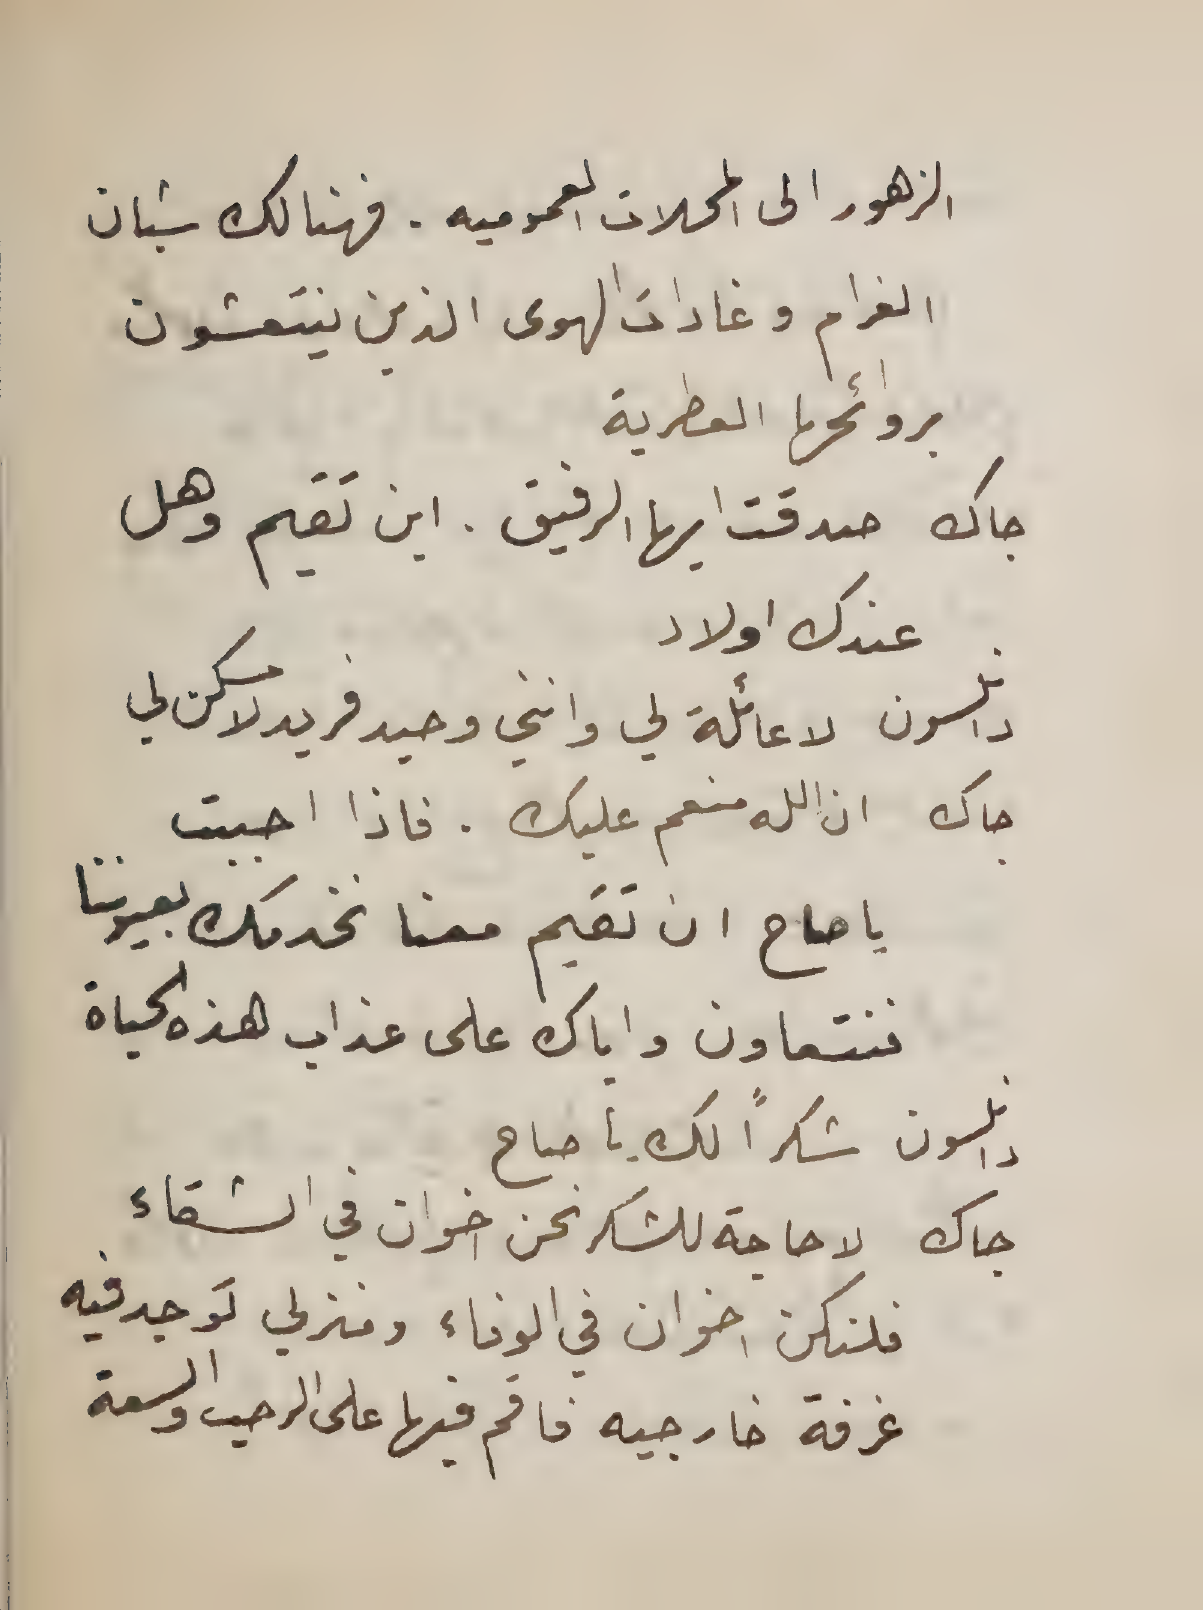 الزهور الى المحلات العموميه . فهنالك شبان
الغرام و غادات الهوى الذين ينتعشون
بروائحها العطرية
جاك صدقت ايها الرفيق . اين تقيم وهل
عندك اولاد
دانلسون لا عائلة لي وانني وحيد فريد لا مسكن لي
جاك ان الله منعم عليك . فاذا احببت
يا صاح ان تقيم معنا نخدمك بعيوننا
فنتعاون واياك على عذاب هذه الحياة
دانلسون شكراً لك يا صاح
جاك لا حاجة للشكر نحن اخوان في الشقاء
فلنكن اخوان في الوفاء ومنزلي توجد فيه
غرفة خارجيه فاقم فيها على الرحب والسعة